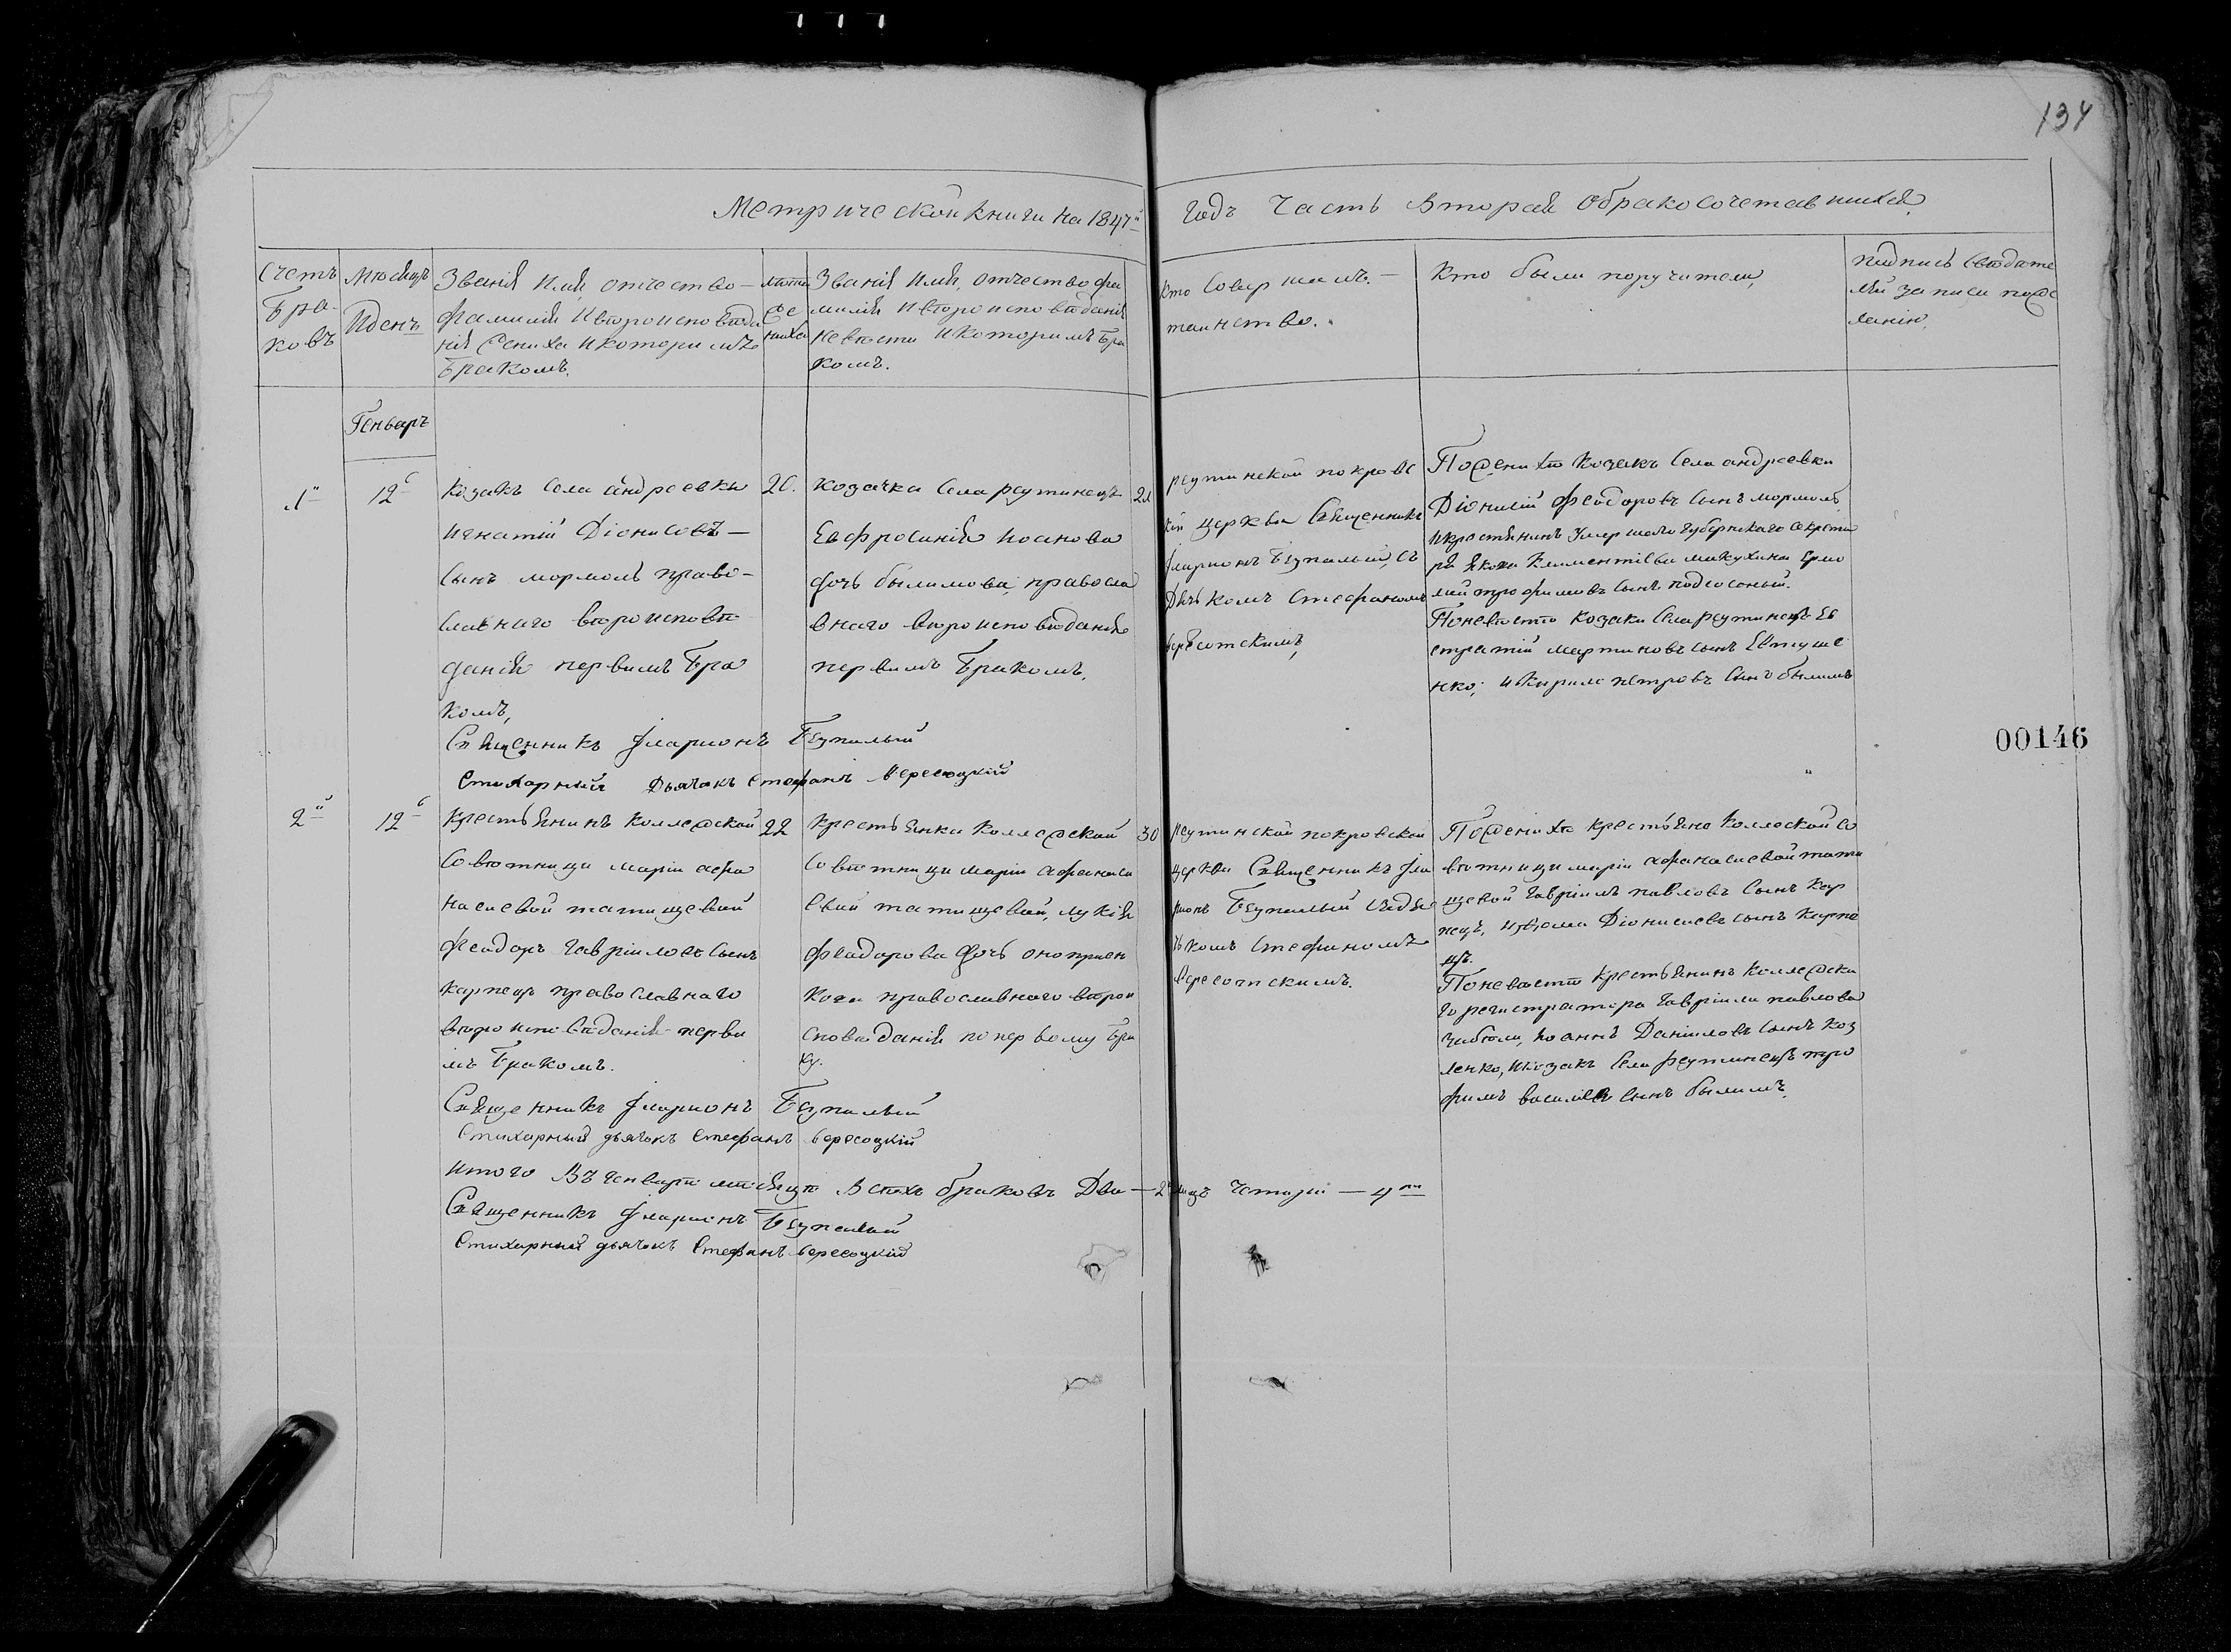 134
Метрической книги на 1847й годъ Часть Вторая обракосочетавшихся
Счетъ Бра-ковъ
Мѣсяцъ Иденъ
Званія Имя, отчество —
фамилія Ивѣроисповѣда
ніе Жениха Икоторимъ
Бракомъ.
лѣта Же ниха
Званія Имя, отчество фа
милія Ивѣроисповѣданія
невѣсти Икоторимъ Бра
комъ.
Кто Совершалъ —
таинство.
Кто были поручители,
Подпись Свѣдѣте
лей записи по же
ланію,
Генваръ
1й
12
Козакъ Села Андреевки
Игнатій Діонисовъ —
Сынъ мормоль право-
славнаго вѣроисповѣ
данія первимъ Бра
комъ,
20.
Козачка Села реутинецъ
Евфросинія Иоанова
дочь былимова, правосла
внаго вѣроисповѣданія
первимъ Бракомъ,
21
реутинской покровс
кой церкви Священникъ
Іларионъ Безпалый, съ
Дячкомъ Стефаномъ
вересотскимъ,
Поженихѣ Козакъ Села андреевки
Діонисій Феодоровъ Сынъ мормоль,
икрестянинъ Умершаго Губернскаго Секрета
ра Якова Климентіева макухина Ермо
лай трофимовъ Сынъ подсосоный.
Поневѣстѣ Козаки Села реутинецъ Ев
стратій мартиновъ сынъ Евтуше
нко, иКирило петровъ Сынъ былимъ
Священникъ Іларионъ Безпалый
Стихарный Дьячокъ Стефанъ Вересоцкій
00146
2й
12
Крестьянинъ Коллежской
Совѣтници маріи афа
насиевой татищевой
Феодоръ Гавріиловъ Сынъ
карпецъ православнаго
вѣроисповѣданія перви
мъ Бракомъ.
22
Крестьянка Коллежской
Совѣтници маріи афанаси
евой татищевой, лукія
Феодорова дочь оноприен
кова православнаго вѣрои
сповѣданія по первому Бра
ку.
30
реутинской покровской
церкви Священникъ Іла
рионъ Безпалый Сьдя
чкомъ Стефаномъ
Вересотскимъ.
Поженихѣ Крестьяне Коллеской Со
вѣтници маріи афанасиевой тати
щевой Гавріилъ павловъ Сынъ Кар
пецъ, иѳома Діонисиевъ сынъ Карпе
цъ.
Поневѣстѣ Крестьянинъ Коллежска
го регистратора Гавріила павлова
Забѣли, Иоаннъ Даниловъ сынъ Коз
ленко, иКозакъ Села реутинецъ тро
фимъ василіевъ Сынъ былимъ.
Священникъ Іларионъ Безпалый
Стихарный дьячокъ Стефанъ вересоцкій
Итого Въ Генварѣ мѣсяцѣ Всѣхъ браковъ Два — 2 лицъ Четири — 4ри
Священникъ Іларионъ Безпалый
Стихарный дьячокъ Стефанъ вересоцкій